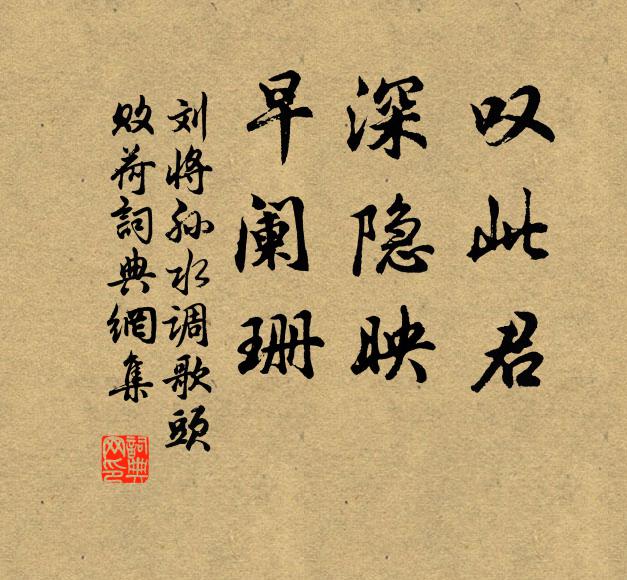 叹此君
深隐映
早阑珊
刘将孙水调歌头
败荷詞典網集
詞典
网印